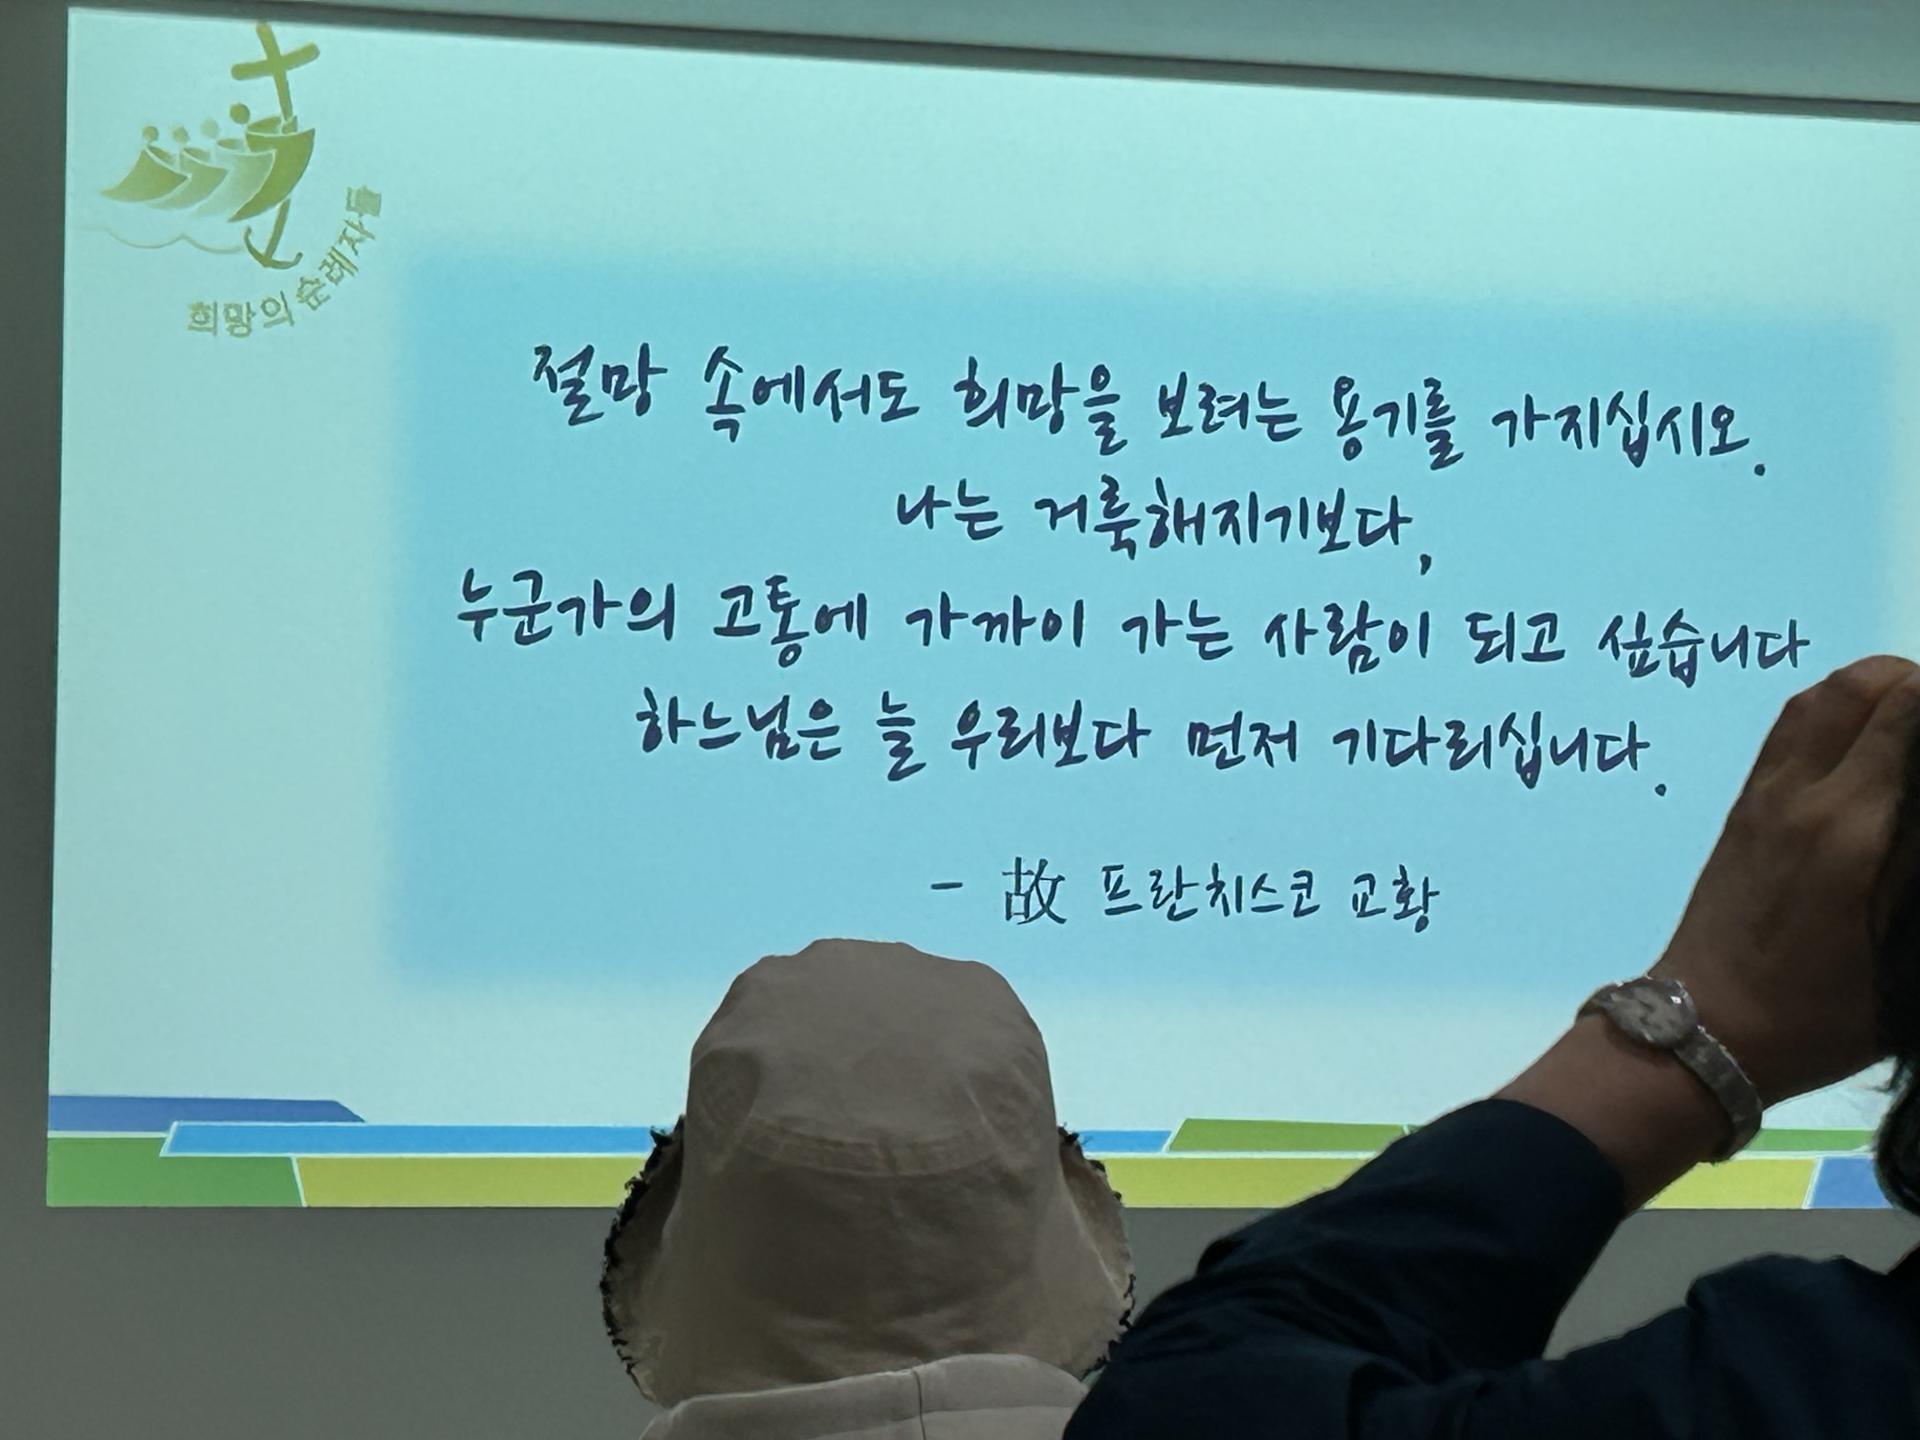 희망의 순례자들
절망 속에서도 희망을 보려는 용기를 가지십시오.
나는 거룩해지기보다,
누군가의 고통에 가까이 가는 사람이 되고 싶습니다
하느님은 늘 우리보다 먼저 기다리십니다.
- 故 프란치스코 교황